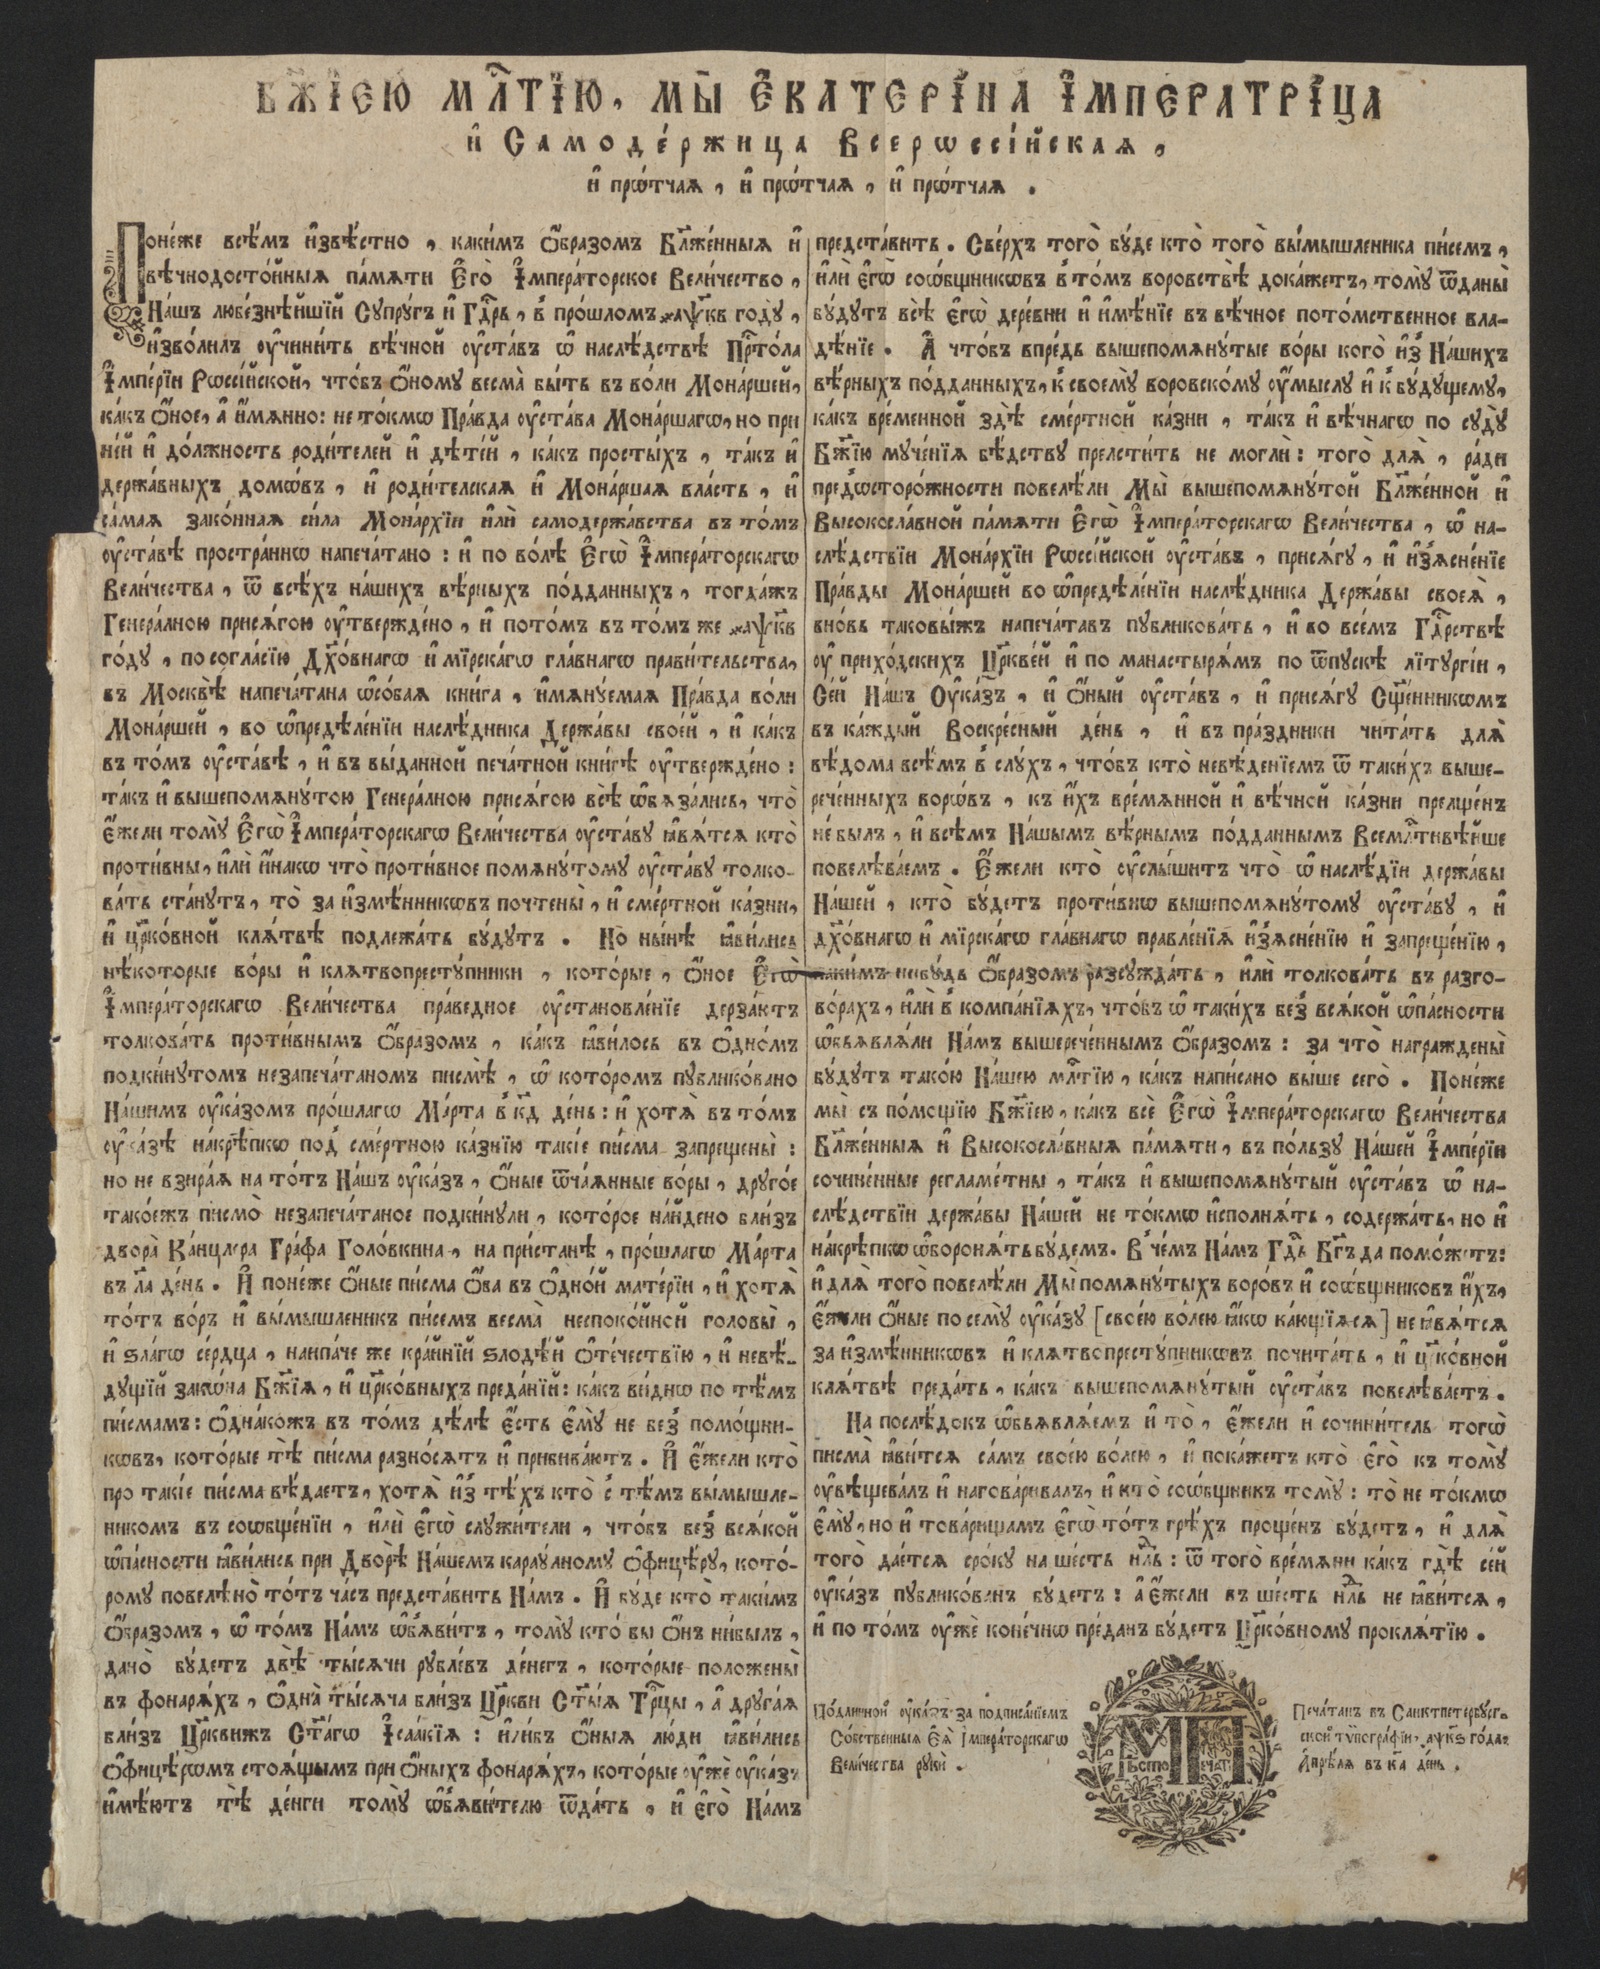 БЖ҃ІЕЮ МЛ҃ТІЮ, МЫ̀ Е҆КАТЕРІ́НА І҆МПЕРАТРІ́ЦА
и҆ Самоде́ржица Всерѡссі́йская,
и҆ прѡ́тчая, и҆ прѡ́тчая, и҆ прѡ́тчая.
Поне́же всѣ́мъ и҆звѣ́стно, каки́мъ ѻ҆́бразомъ Бл҃же́нныя и҆
вѣчнодосто́йныя па́мяти Е҆гѡ̀ І҆мпера́торское Вели́чество,
На́шъ любе́знѣйшїй Супру́гъ и҆ Гдⷭ҇рь, в̾ про́шломъ ҂аѱк҃в году̀,
и҆зво́лилъ ᲂу҆чини́ть вѣ́чной ᲂу҆ста́въ ѡ҆ наслѣ́дствѣ Прⷭ҇то́ла
І҆мпе́рїи Рѡссі́йской, что́бъ ѻ҆́ному весма̀ бы́ть въ во́ли Мона́ршей,
ка́къ ѻ҆́ное, а҆ и҆́мянно: не то́кмѡ Пра́вда ᲂу҆ста́ва Мона́ршагѡ, но при
не́й и҆ до́лжность роди́телей и҆ дѣте́й, ка́къ просты́хъ, та́къ и҆
держа́вныхъ домѡ́въ, и҆ роди́телская и҆ Мона́ршая вла́сть, и҆
са́мая зако́нная си́ла Мона́рхїи и҆лѝ самодержа́вства въ то́мъ
ᲂу҆ста́вѣ простра́ннѡ напеча́тано: и҆ по во́лѣ Е҆гѡ̀ І҆мпера́торскагѡ
Вели́чества, ѿ всѣ́хъ на́шихъ вѣ́рныхъ по́дданныхъ, тогда́жъ
Генера́лною прися́гою ᲂу҆твержде́но, и҆ пото́мъ въ то́мъ же ҂аѱк҃в
го́ду, по согла́сїю Дх҃о́внагѡ и҆ мїрска́гѡ гла́внагѡ прави́тельства,
въ Москвѣ̀ напеча́тана ѡ҆со́бая кни́га, и҆мяну́емая Пра́вда во́ли
Мона́ршей, во ѡ҆предѣле́нїи наслѣ́дника Держа́вы свое́й, и҆ ка́къ
въ то́мъ ᲂу҆ста́вѣ, и҆ въ вы́данной печа́тной кни́гѣ ᲂу҆твержде́но:
та́къ и҆ вышепомяну́тою Генера́лною прися́гою всѣ̀ ѡ҆бяза́лись, что̀
е҆́жели тому̀ Е҆гѡ̀ І҆мпера́торскагѡ Вели́чества ᲂу҆ста́ву ꙗ҆вя́тся кто̀
проти́вны, и҆лѝ и҆́накѡ что̀ проти́вное помяну́тому ᲂу҆ста́ву толко-
ва́ть ста́нутъ, то̀ за и҆змѣ́нникѡвъ почтены̀, и҆ сме́ртной ка́зни,
и҆ цр҃ко́вной кля́твѣ подлежа́ть бу́дутъ. Но ны́нѣ ꙗ҆ви́лись
нѣ́которые во́ры и҆ клятвопресту́пники, кото́рые, ѻ҆́ное Е҆гѡ̀
І҆мпера́торскагѡ Вели́чества пра́ведное ᲂу҆становле́нїе дерза́ютъ
толкова́ть проти́внымъ ѻ҆́бразомъ, ка́къ ꙗ҆ви́лось въ ѻ҆дно́мъ
подки́нутомъ незапеча́таномъ писмѣ̀, ѡ҆ кото́ромъ публико́вано
На́шимъ ᲂу҆ка́зомъ про́шлагѡ Ма́рта в̾ к҃д де́нь: и҆ хотя̀ въ то́мъ
ᲂу҆ка́зѣ на́крѣпкѡ под̾ сме́ртною ка́знїю такі́е пи́сма запрещены̀:
но не взира́я на то́тъ На́шъ ᲂу҆ка́зъ, ѻ҆́ные ѿча́янные во́ры, друго́е
тако́ежъ писмо̀ незапеча́таное подки́нули, кото́рое на́йдено бли́зъ
двора̀ Ка́нцлера Гра́фа Голо́вкина, на при́станѣ, про́шлагѡ Ма́рта
въ л҃а де́нь. И҆ поне́же ѻ҆́ные пи́сма ѻ҆́ба въ ѻ҆дно́й мате́рїи, и҆ хотя̀
то́тъ во́ръ и҆ вы́мышленикъ пи́семъ весма̀ неспоко́йной головы̀,
и҆ ѕла́гѡ се́рдца, наипа́че же кра́йнїй ѕлодѣ́й ѻ҆те́чествїю, и҆ невѣ́-
дущїй зако́на Бж҃їя, и҆ цр҃ко́вныхъ преда́нїй: ка́къ ви́днѡ по тѣ́мъ
пи́смамъ: ѻ҆дна́кожъ въ то́мъ дѣ́лѣ е҆́сть е҆мꙋ̀ не без̾ помо́щни-
кѡвъ, кото́рые тѣ̀ пи́сма разно́сятъ и҆ прибива́ютъ. И҆ е҆́жели кто̀
про такі́е пи́сма вѣ́даетъ, хотя̀ и҆з̾ тѣ́хъ кто̀ с̾ тѣ́мъ вы́мышле-
никомъ въ соѡбще́нїи, и҆лѝ е҆гѡ̀ служи́тели, что́бъ без̾ вся́кой
ѡ҆па́сности ꙗ҆ви́лись при Дворѣ̀ На́шемъ караулному ѻ҆фицѣ́ру, кото́-
рому повелѣно̀ то́тъ ча́съ предста́вить На́мъ. И҆ бу́де кто̀ таки́мъ
ѻ҆́бразомъ, ѡ҆ то́мъ На́мъ ѡ҆б̾яви́тъ, тому̀ кто́ бы ѻ҆́нъ ни́былъ,
дано̀ бу́детъ двѣ̀ ты́сячи рубле́въ де́негъ, кото́рые положены̀
въ фонаря́хъ, ѻ҆дна̀ ты́сяча бли́зъ Цр҃кви Ст҃ы́я Трⷪ҇цы, а҆ друга́я
бли́зъ Цр҃квижъ Ст҃а́гѡ І҆саа́кїя: и҆ли́бъ ѻ҆́ныя лю́ди ꙗ҆ви́лись
ѻ҆фицѣ́рѡмъ стоя́щымъ при ѻ҆́ныхъ фонаря́хъ, кото́рые ᲂу҆жѐ ᲂу҆ка́зъ
и҆мѣ́ютъ тѣ̀ де́нги тому̀ ѡ҆б̾яви́телю ѿда́ть, и҆ е҆го̀ На́мъ
предста́вить. Све́рхъ того̀ бу́де кто̀ того̀ вы́мышленика пи́семъ,
и҆лѝ е҆гѡ̀ соѡ́бщникѡвъ в̾ то́мъ воровствѣ̀ дока́жетъ, тому̀ ѿданы̀
бу́дутъ всѣ̀ е҆гѡ̀ дере́вни и҆ и҆мѣ́нїе въ вѣ́чное пото́мственное вла-
дѣ́нїе. А҆ что́бъ впре́дь вышепомяну́тые во́ры кого̀ и҆з̾ На́шихъ
вѣ́рныхъ по́дданныхъ, к̾ своему̀ воровско́му ᲂу҆́мыслу и҆ к̾ бу́дущему,
ка́къ вре́менной здѣ̀ сме́ртной ка́зни, та́къ и҆ вѣ́чнагѡ по суду̀
Бж҃їю муче́нїя бѣ́дству прелсти́ть не моглѝ: того̀ для̀, ра́ди
пред̾ѡсторо́жности повелѣ́ли Мы̀ вышепомяну́той Бл҃же́нной и҆
Высокосла́вной па́мяти Е҆гѡ̀ І҆мпера́торскагѡ Вели́чества, ѡ҆ на-
слѣ́дствїи Мона́рхїи Рѡссі́йской ᲂу҆ста́въ, прися́гу, и҆ и҆з̾ясне́нїе
Пра́вды Мона́ршей во ѡ҆предѣле́нїи наслѣ́дника Держа́вы своея̀,
вно́вь таковы́жъ напеча́тавъ публикова́ть, и҆ во все́мъ Гдⷭ҇рствѣ
ᲂу҆ прихо́дскихъ Цр҃кве́й и҆ по манастыря́мъ по ѿпускѣ лїтургі́и,
Се́й На́шъ Оу҆ка́зъ, и҆ ѻ҆́ный ᲂу҆ста́въ, и҆ прися́гу Сщ҃е́нникѡмъ
въ ка́ждый Воскре́сный де́нь, и҆ въ пра́здники чита́ть для̀
вѣ́дома всѣ́мъ в̾ слу́хъ, что́бъ кто̀ невѣ́денїемъ ѿ таки́хъ выше-
рече́нныхъ ворѡ́въ, къ и҆́хъ вре́мянной и҆ вѣ́чной ка́зни прелще́нъ
не́былъ, и҆ всѣ́мъ На́шымъ вѣ́рнымъ по́дданнымъ Всемл҃тивѣ́йше
повелѣва́емъ. Е҆́жели кто̀ ᲂу҆слы́шитъ что̀ ѡ҆ наслѣ́дїи держа́вы
На́шей, кто̀ бу́детъ проти́внѡ вышепомяну́тому ᲂу҆ста́ву, и҆
дх҃о́внагѡ и҆ мїрска́гѡ гла́внагѡ правле́нїя и҆з̾ясне́нїю и҆ запреще́нїю,
каки́мъ нибу́дь ѻ҆́бразомъ разсужда́ть, и҆лѝ толкова́ть въ разго-
во́рахъ, и҆лѝ в̾ компа́нїяхъ, что́бъ ѡ҆ таки́хъ без̾ вся́кой ѡ҆па́сности
ѡ҆бьявля́ли На́мъ вышерече́ннымъ ѻ҆́бразомъ: за что̀ награждены̀
бу́дутъ тако́ю На́шею мл҃тїю, ка́къ напи́сано вы́ше сего̀. Поне́же
мы̀ съ по́мощїю Бж҃їею, ка́къ всѐ Е҆гѡ̀ І҆мпера́торскагѡ Вели́чества
Бл҃же́нныя и҆ Высокосла́вныя па́мяти, въ по́льзу На́шей І҆мпе́рїи
сочине́нные регламе́тны, та́къ и҆ вышепомяну́тый ᲂу҆ста́въ ѡ҆ на-
слѣ́дствїи держа́вы На́шей не то́кмѡ и҆сполня́ть, содержа́ть, но и҆
на́крѣпкѡ ѡ҆бороня́ть бу́демъ. В̾ че́мъ На́мъ Гдⷭ҇ь Бг҃ъ да помо́жетъ:
и҆ для̀ того̀ повелѣ́ли Мы̀ помяну́тыхъ воро́въ и҆ соѡ́бщниковъ и҆́хъ,
е҆́жели ѻ҆́ные по сему̀ ᲂу҆ка́зу [свое́ю во́лею ꙗ҆́кѡ ка́ющїяся] не ꙗ҆вя́тся
за и҆змѣ́нникѡвъ и҆ клятвопресту́пникѡвъ почита́ть, и҆ цр҃ко́вной
кля́твѣ преда́ть, ка́къ вышепомяну́тый ᲂу҆ста́въ повелѣва́етъ.
На послѣ́докъ ѡ҆бьявля́емъ и҆ то̀, е҆́жели и҆ сочини́тель тогѡ̀
писма̀ ꙗ҆ви́тся са́мъ свое́ю во́лею, и҆ пока́жетъ кто̀ е҆го̀ къ тому̀
ᲂу҆вѣщева́лъ и҆ нагова́ривалъ, и҆ кто̀ соѡ́бщникъ тому̀: то̀ не то́кмѡ
е҆му̀, но и҆ това́рищамъ е҆гѡ̀ то́тъ грѣ́хъ проще́нъ бу́детъ, и҆ для̀
того̀ дае́тся сро́ку на ше́сть нлⷣь: ѿ того̀ вре́мяни ка́къ гдѣ̀ се́й
ᲂу҆ка́зъ публико́ванъ бу́детъ: а҆ е҆́жели въ ше́сть нлⷣь не ꙗ҆ви́тся,
и҆ по то́мъ ᲂу҆жѐ коне́чнѡ пре́данъ бу́детъ Цр҃ко́вному прокля́тїю.
По́длинной ᲂу҆ка́зъ за подписа́нїемъ
Со́бственныя Е҆я̀ І҆мпера́торскагѡ
Вели́чества рукѝ.
МП
Мѣсто Печати
Печа́танъ въ Санктпетербу́рг-
ской тѷпогра́фїи, ҂аѱк҃ѕ го́да,
А҆прѣ́ля въ к҃а де́нь.